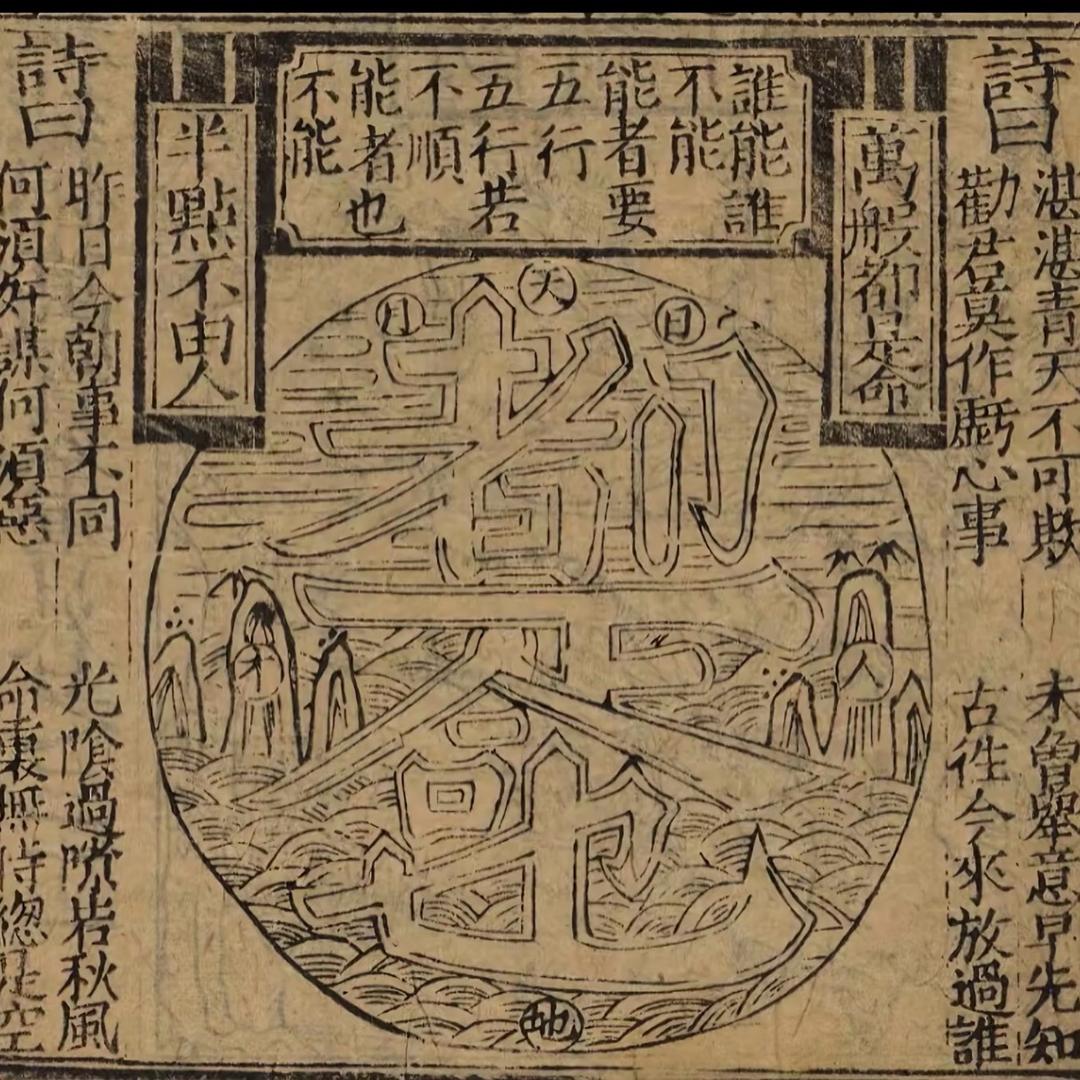 詩曰
湛湛青天不可欺
未曾舉意早先知
勸君莫作虧心事
古往今來放過誰
萬般都是命
誰能誰
不能
能者要
五行
五行若
不順
能者也
不能
半點不由人
日
天
月
人
地
詩曰
昨日今朝事不同
光陰過隙岩秋風
何須奸謀何須惡
命裏無時總是空